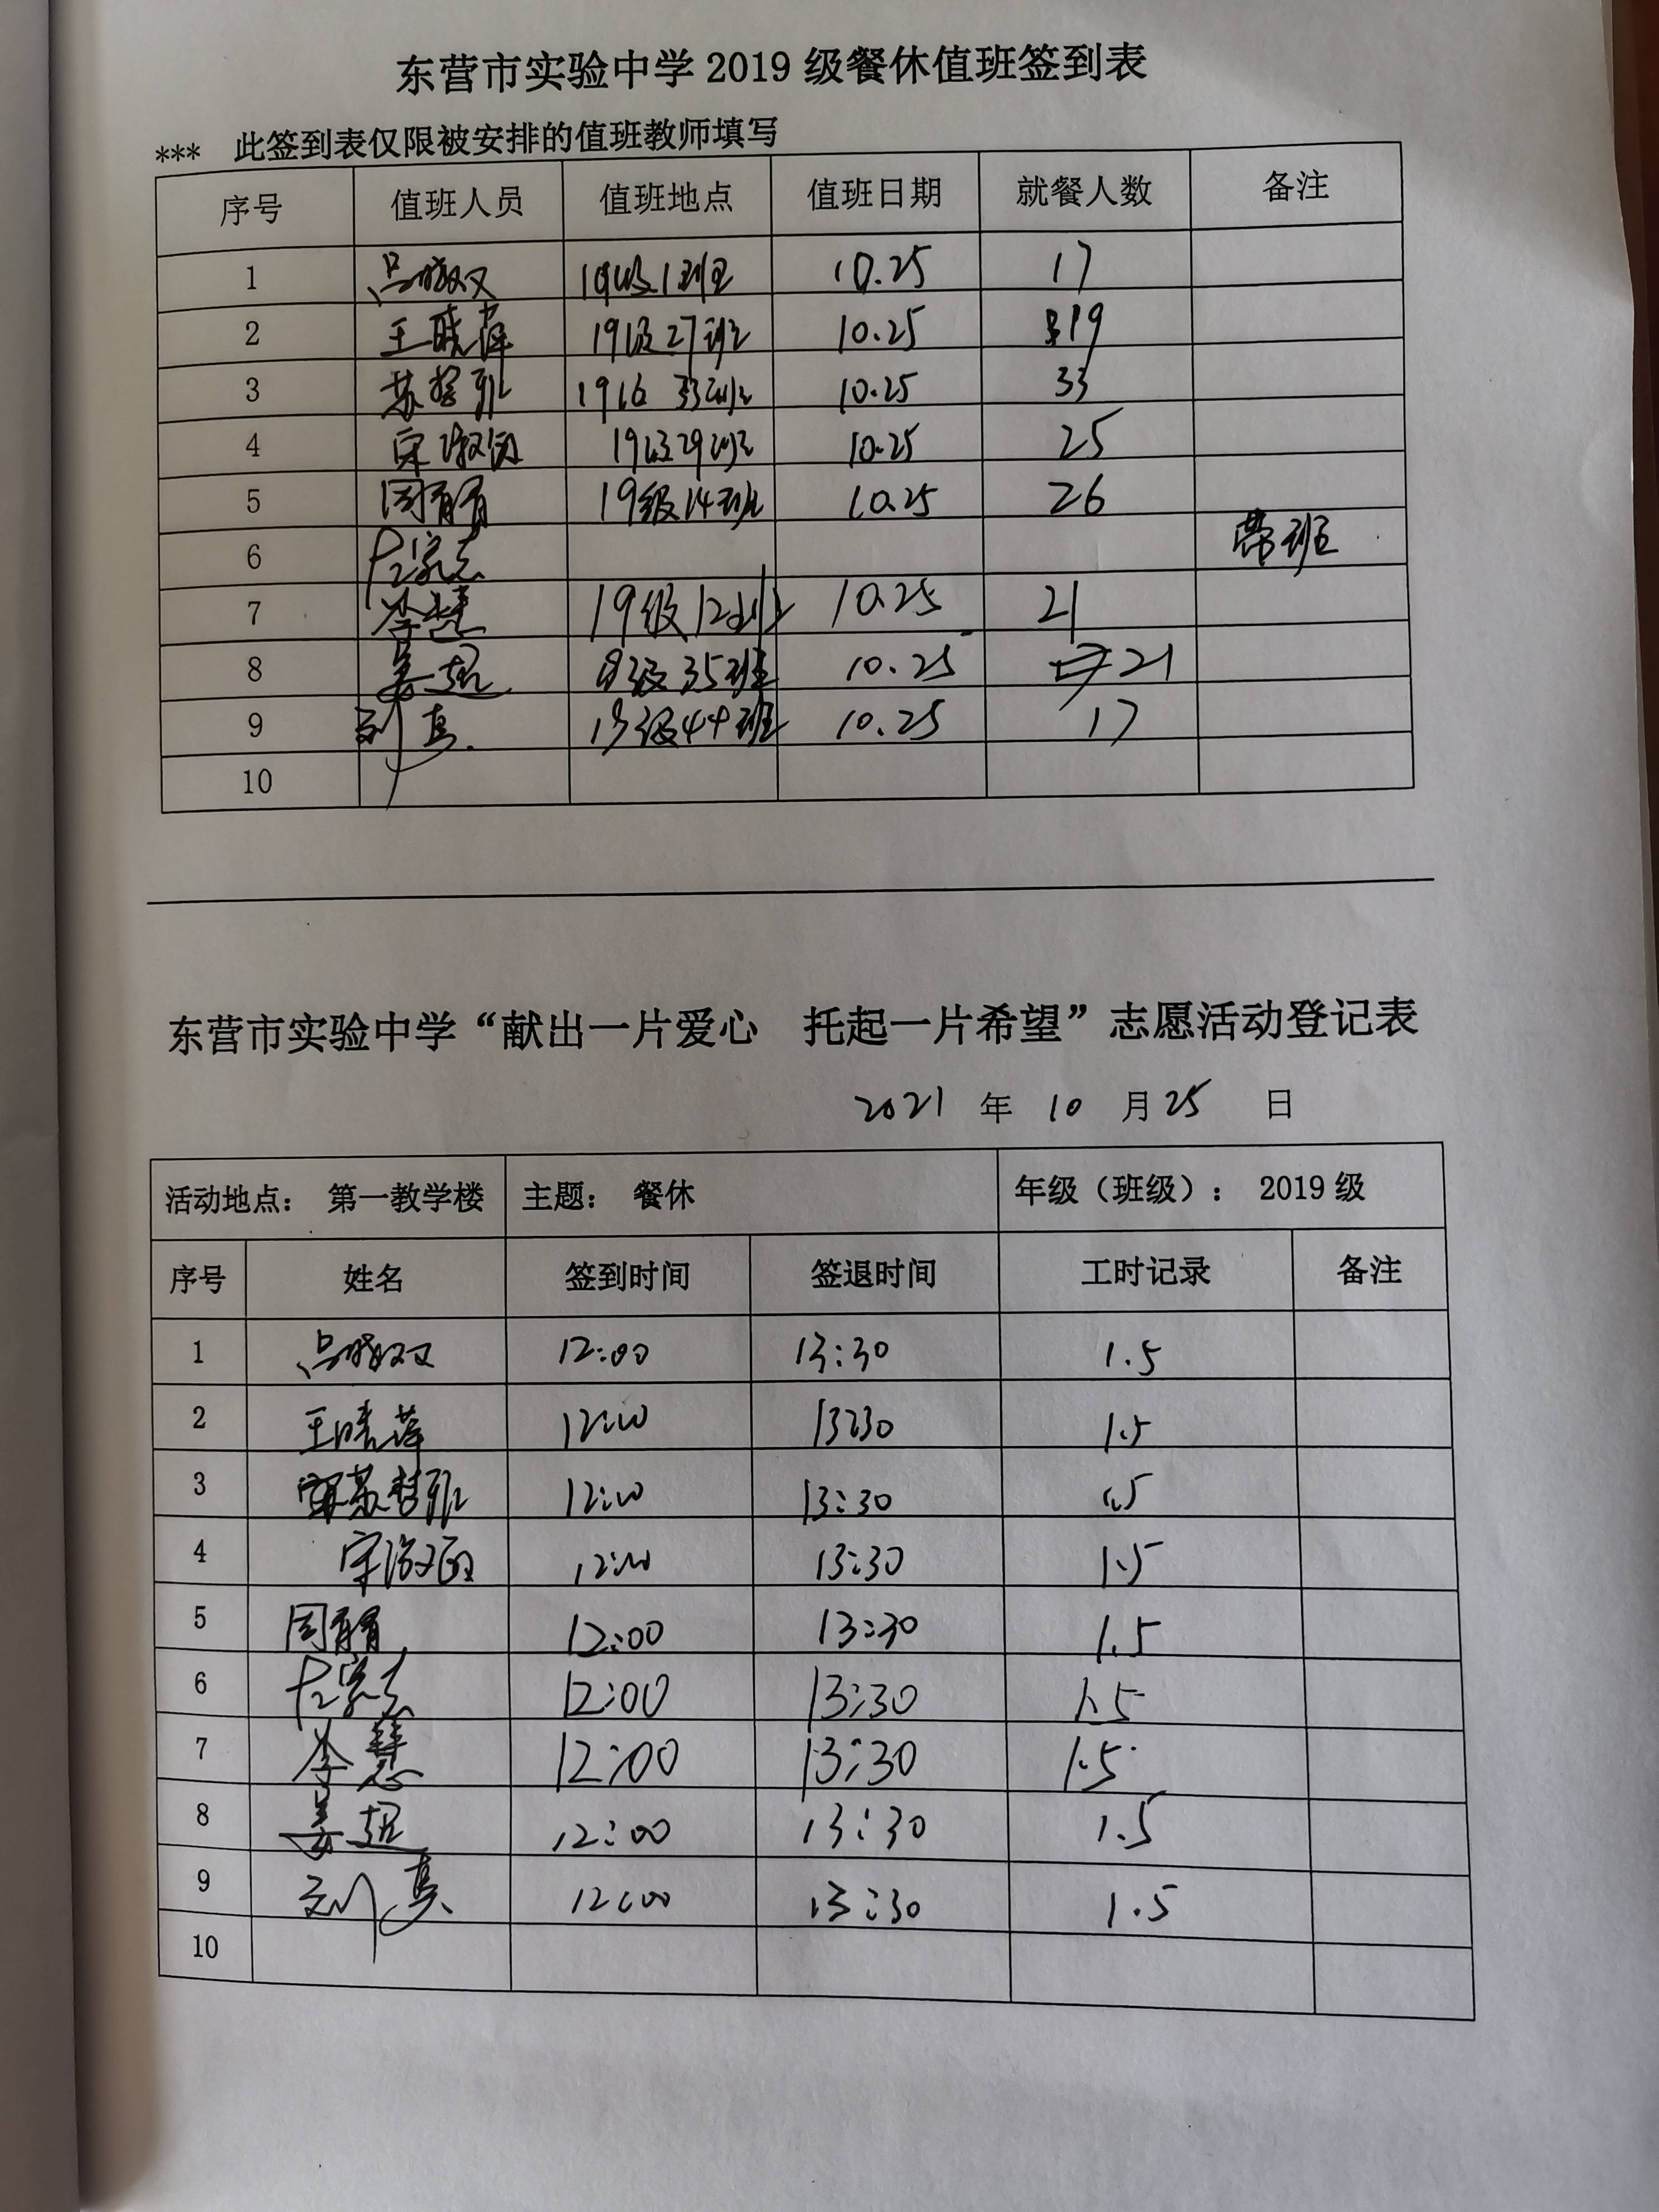 东营市实验中学 2019 级餐休值班签到表
*** 此签到表仅限被安排的值班教师填写
序号 值班人员 值班地点 值班日期 就餐人数 备注
1 19级1班 10.25 17
2 王晓萍 19级27班 10.25 19
3 苏哲 33班 10.25 33
4 宋淑 19级29班 10.25 25
5 周 19级14班 10.25 26
6 带班
7 李慧 19级12班 10.25 21
8 姜超 19级35班 10.25 21
9 刘真 19级44班 10.25 17
10
东营市实验中学“献出一片爱心 托起一片希望”志愿活动登记表
2021 年 10 月 25 日
活动地点： 第一教学楼 主题： 餐休 年级（班级）： 2019 级
序号 姓名 签到时间 签退时间 工时记录 备注
1 12:00 13:30 1.5
2 王晓萍 12:00 13:30 1.5
3 苏哲 12:00 13:30 1.5
4 宋淑 12:00 13:30 1.5
5 周 12:00 13:30 1.5
6 12:00 13:30 1.5
7 李慧 12:00 13:30 1.5
8 姜超 12:00 13:30 1.5
9 刘真 12:00 13:30 1.5
10